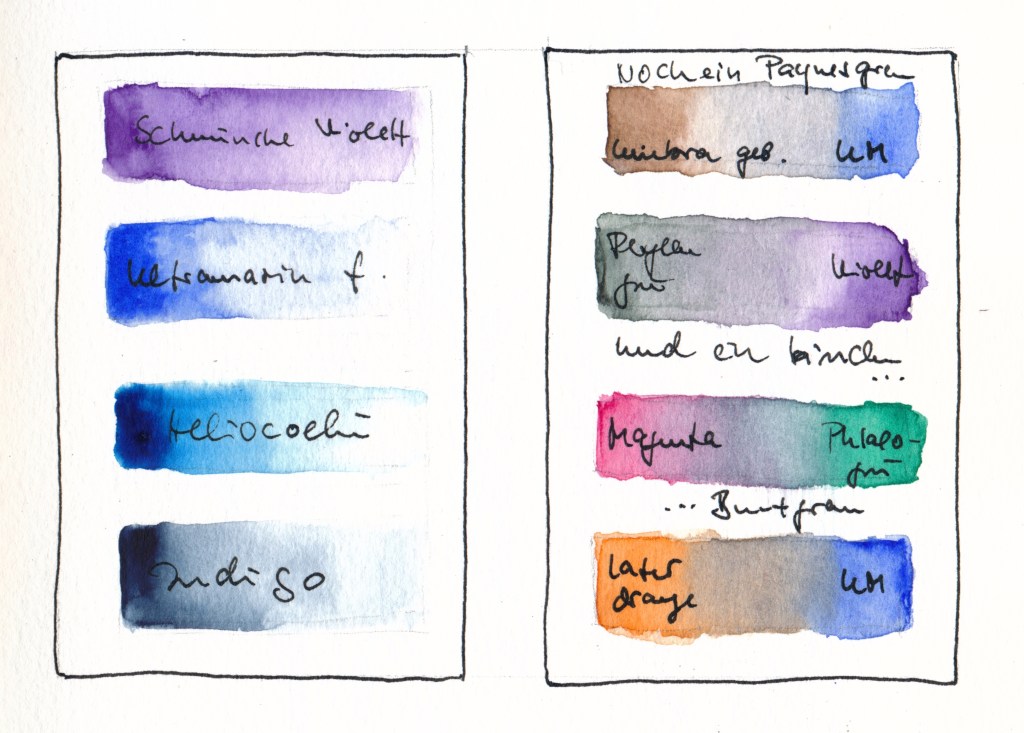 Schmincke Violett
Ultramarin f.
Heliocoelin
Indigo
Noch ein Paynesgrau
Umbra geb. UM
Perylen
grün
Violett
und ein bisschen
...
Magenta
Phtalo-
grün
... Buntgrau
Later
Orange
UM